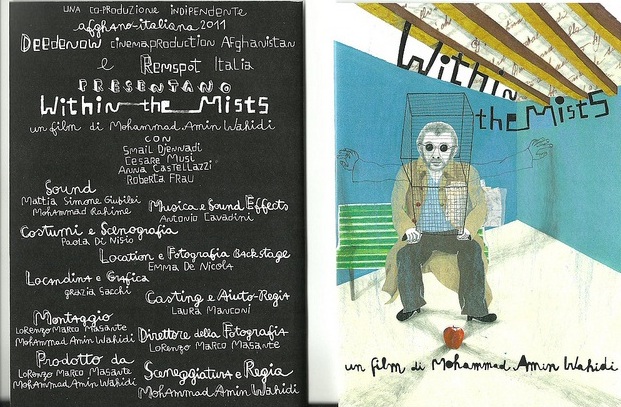 UNA CO-PRODUZIONE INDIPENDENTE
afghano-italiana 2011
Deedenow cinemaproduction Afghanistan
e Remspot Italia
PRESENTANO
Within the Mists
un film di Mohammad Amin Wahidi
CON
Smail Djennadi
Cesare Musi
Anna Castellazzi
Roberta Frau
Sound
Mattia Simone Giubilei
Mohammad Rahime
Musica e Sound Effects
Antonio Cavadini
Costumi e Scenografia
Paola Di Nisio
Location e Fotografia Backstage
Emma De Nicola
Locandina e Grafica
Grazia Sacchi
Casting e Aiuto-Regia
Laura Manconi
Montaggio
Lorenzo Marco Masante
Mohammad Amin Wahidi
Direttore della Fotografia
Lorenzo Marco Masante
Prodotto da
Lorenzo Marco Masante
Mohammad Amin Wahidi
Sceneggiatura e Regia
Mohammad Amin Wahidi
Within
the Mists
un film di Mohammad Amin Wahidi